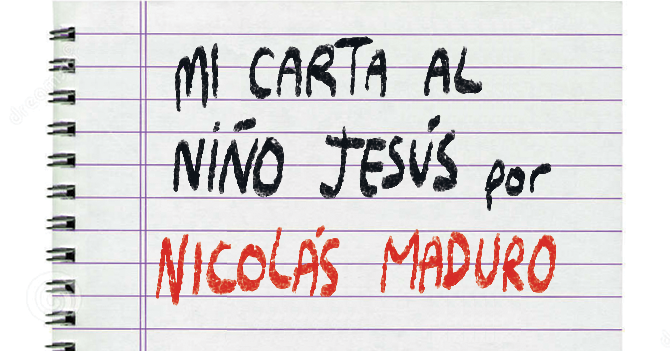 MI CARTA AL
NIÑO JESÚS por
NICOLÁS MADURO